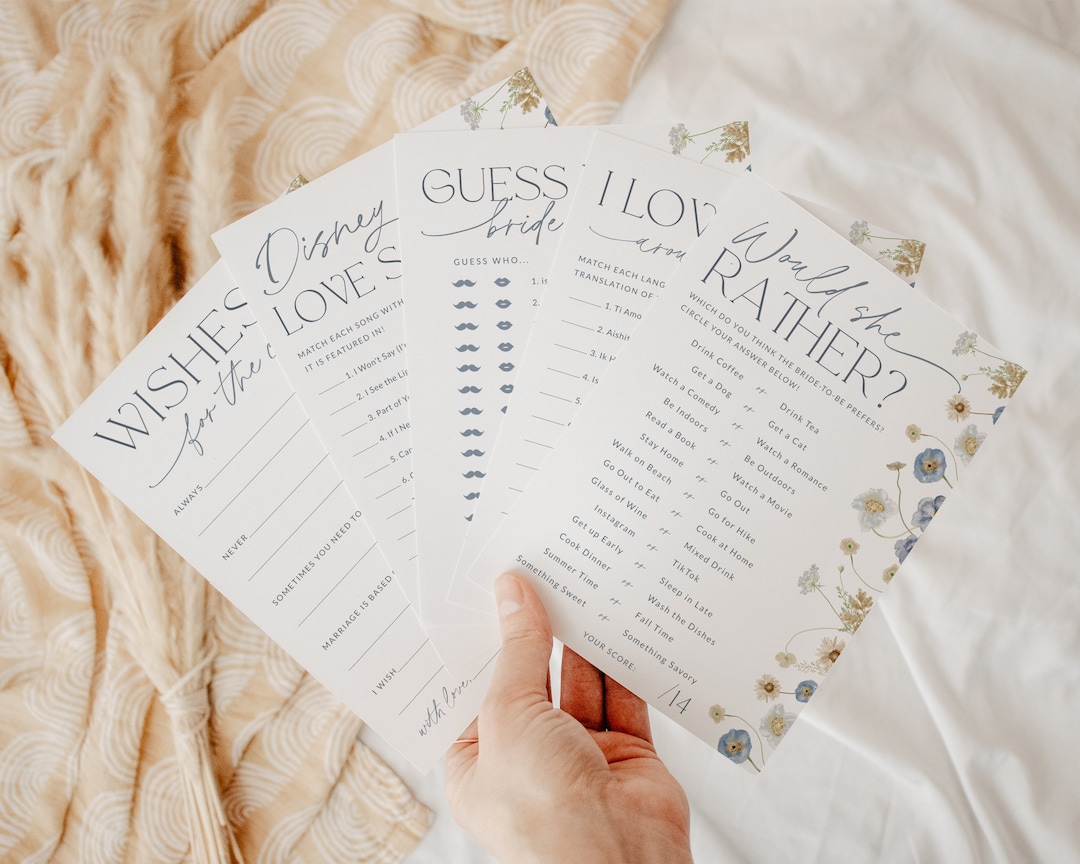 WISHES
for the
ALWAYS
NEVER
SOMETIMES YOU NEED TO
MARRIAGE IS BASED
I WISH
with love,
Disney
LOVE S
MATCH EACH SONG WITH
IT IS FEATURED IN!
1. I Won't Say (I'
2. I See the Lig
3. Part of Y
4. If I Ne
5. Can
6.
GUESS
bride
GUESS WHO...
1. is
2.
I LOV
arou
MATCH EACH LANG
TRANSLATION OF
1. Ti Amo
2. Aishi
3. Ik H
4. Is
5.
Would she
RATHER?
WHICH DO YOU THINK THE BRIDE-TO-BE PREFERS?
CIRCLE YOUR ANSWER BELOW!
Drink Coffee or Drink Tea
Get a Dog or Get a Cat
Watch a Comedy or Watch a Romance
Be Indoors or Be Outdoors
Read a Book or Watch a Movie
Stay Home or Go Out
Walk on Beach or Go for Hike
Go Out to Eat or Cook at Home
Glass of Wine or Mixed Drink
Instagram or TikTok
Get up Early or Sleep in Late
Cook Dinner or Wash the Dishes
Summer Time or Fall Time
Something Sweet or Something Savory
YOUR SCORE:
/14